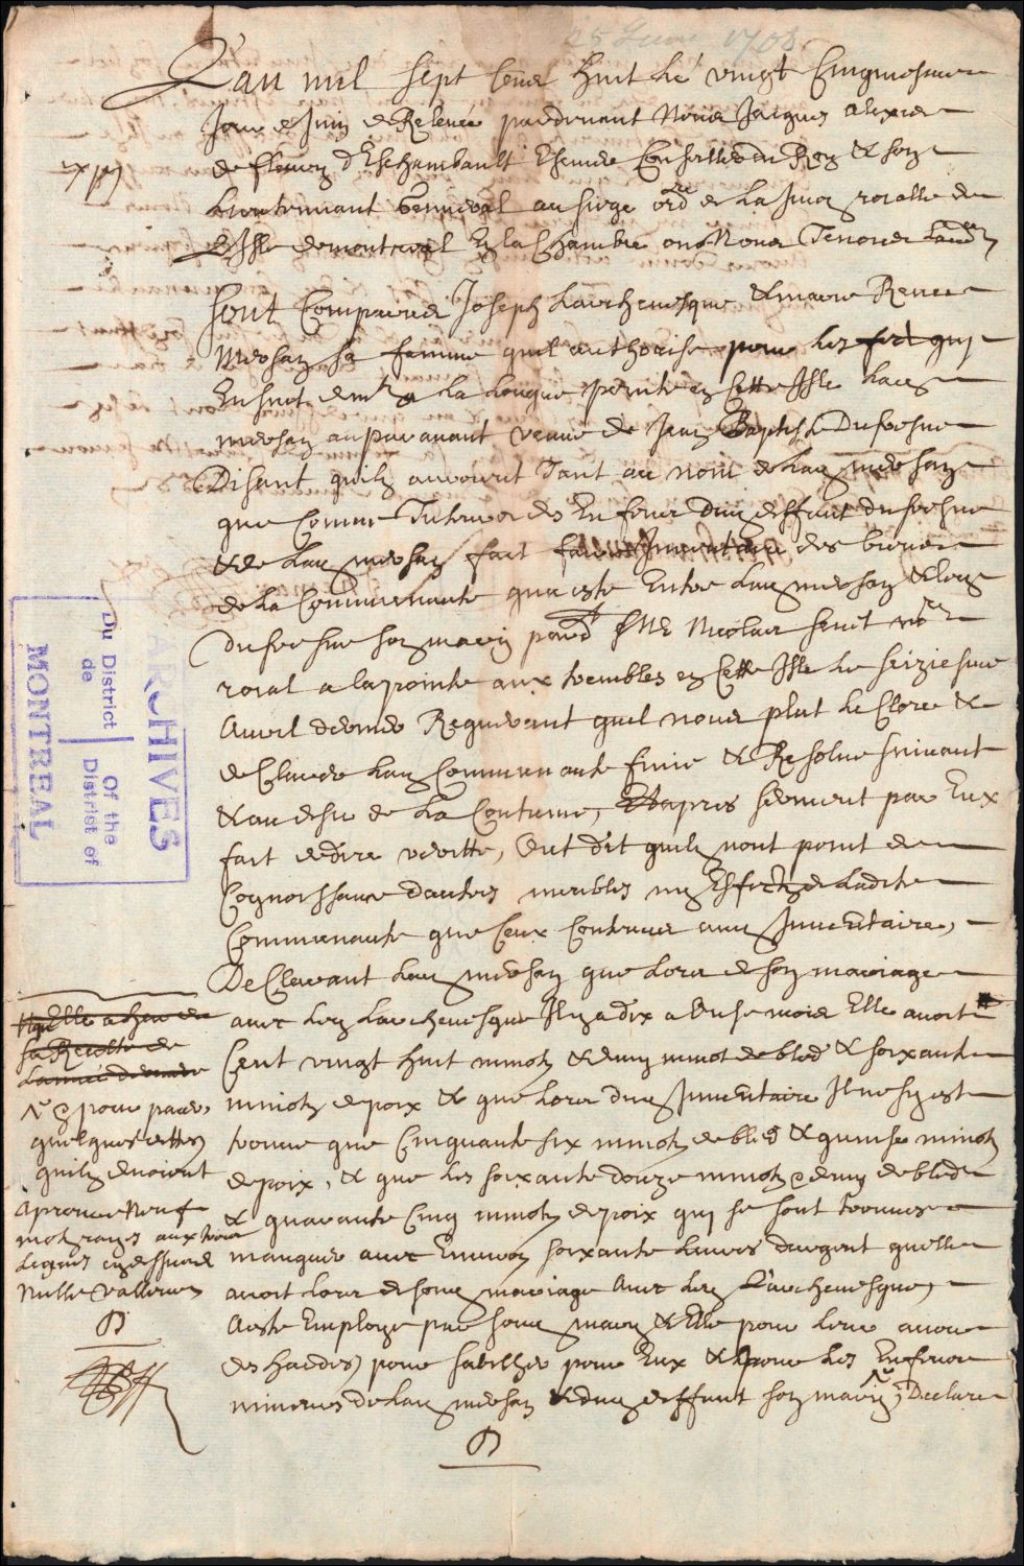 25 Juin 1708.
L'an mil sept Cens huit le vingt Cinquiesme
Jour de Juin de Relevée pardevant Nous Jacques alexis
de fleury d'Eschambault Escuier Conseiller du Roy & son
Lieutennant General au siege ord.re de la Juron roialle de
L'Isle de montreal En la Chambre ou Nous Tenons Laud.ce
exp.
Sont Comparus Joseph Larchevesque & marie Renee
mersan sa femme quil authorise pour les
demt a la Longue pointe en Cette Isle Lad.
mersan auparavant veuve de Jean Baptiste Dufresne
Disant quils auroient Tant au nom de lad. mersan
que Comme Tuteurs des Enfens dud. deffunt dufresne
& de Lad. mersan fait faire Inventaire des biens
de la Communauté qua esté Entre Lad. mersan & led.
dufresne son mary pard. Me Nicolas Senet nore
roial a la pointe aux trembles en Cette Isle le seiziesme
Avril dernier Requerant quil nous plut le Clore &
declarer Lad. Communauté finie & Resolue suivant
& au desir de la Coutume, Et apres serment par Eux
fait de dire veritté, Ont dit quils nont point de
Cognoissance dautres meubles ny Effects de Ladite
Communauté que Ceux Contenus aud. Inventaire,
Declarant Lad. mersan que Lors de son mariage
avec led. Larchevesque Il y a dix a Onse mois Elle avoit
Cent vingt huit minots & demy minot de bled & soixante
minots de poix & que Lors dud. Inventaire Il ne sy est
trouvé que Cinquante six minots de bled & quinse minots
de poix, & que les soixante douze minots & demy de bled
& quarante Cinq minots de poix qui se sont trouvés
manquer avec Environ soixante Livres dargent quelle
avoit Lors de son d. mariage avec led. Larchevesque,
A esté Employé par son d. mary & Elle pour leur avoir
des hardes, pour sabiller pour Eux & pour les Enfens
mineurs de Lad. mersan & dud. deffunt son mary, Declare
Elle a
sa Recolte de
Lannée derniere
& pour paier
quelques dettes
quils devoient
Aprouvé Neuf
mots rayés aux trois
Lignes cy dessus
Nulle valleur
ARCHIVES
Du District | Of the
de | District of
MONTREAL